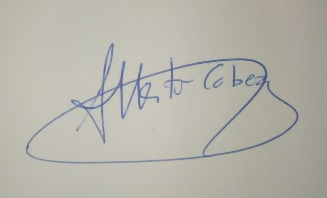 Alberto Cabeza